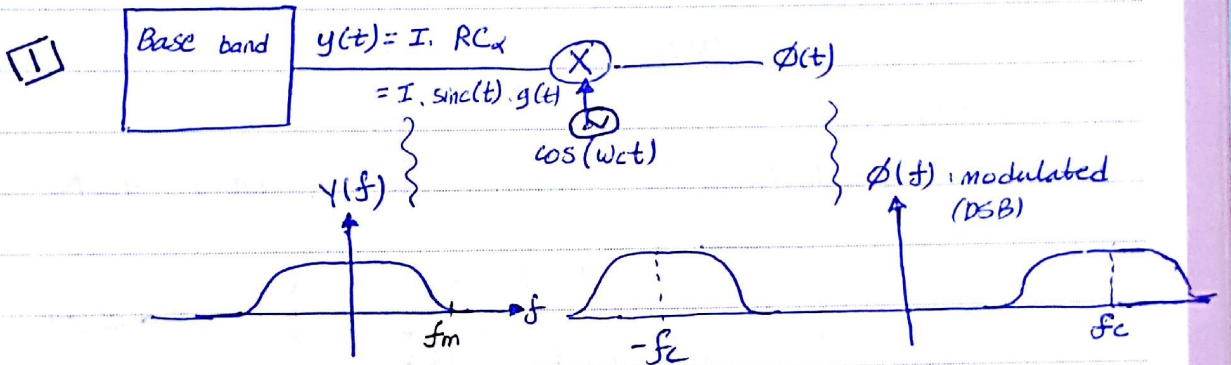 1
Base band
y(t) = I. RCα
= I. sinc(t). g(t)
X
Ø(t)
cos(ωct)
Y(f)
Ø(f) : modulated
(DSB)
fm
f
-fc
fc